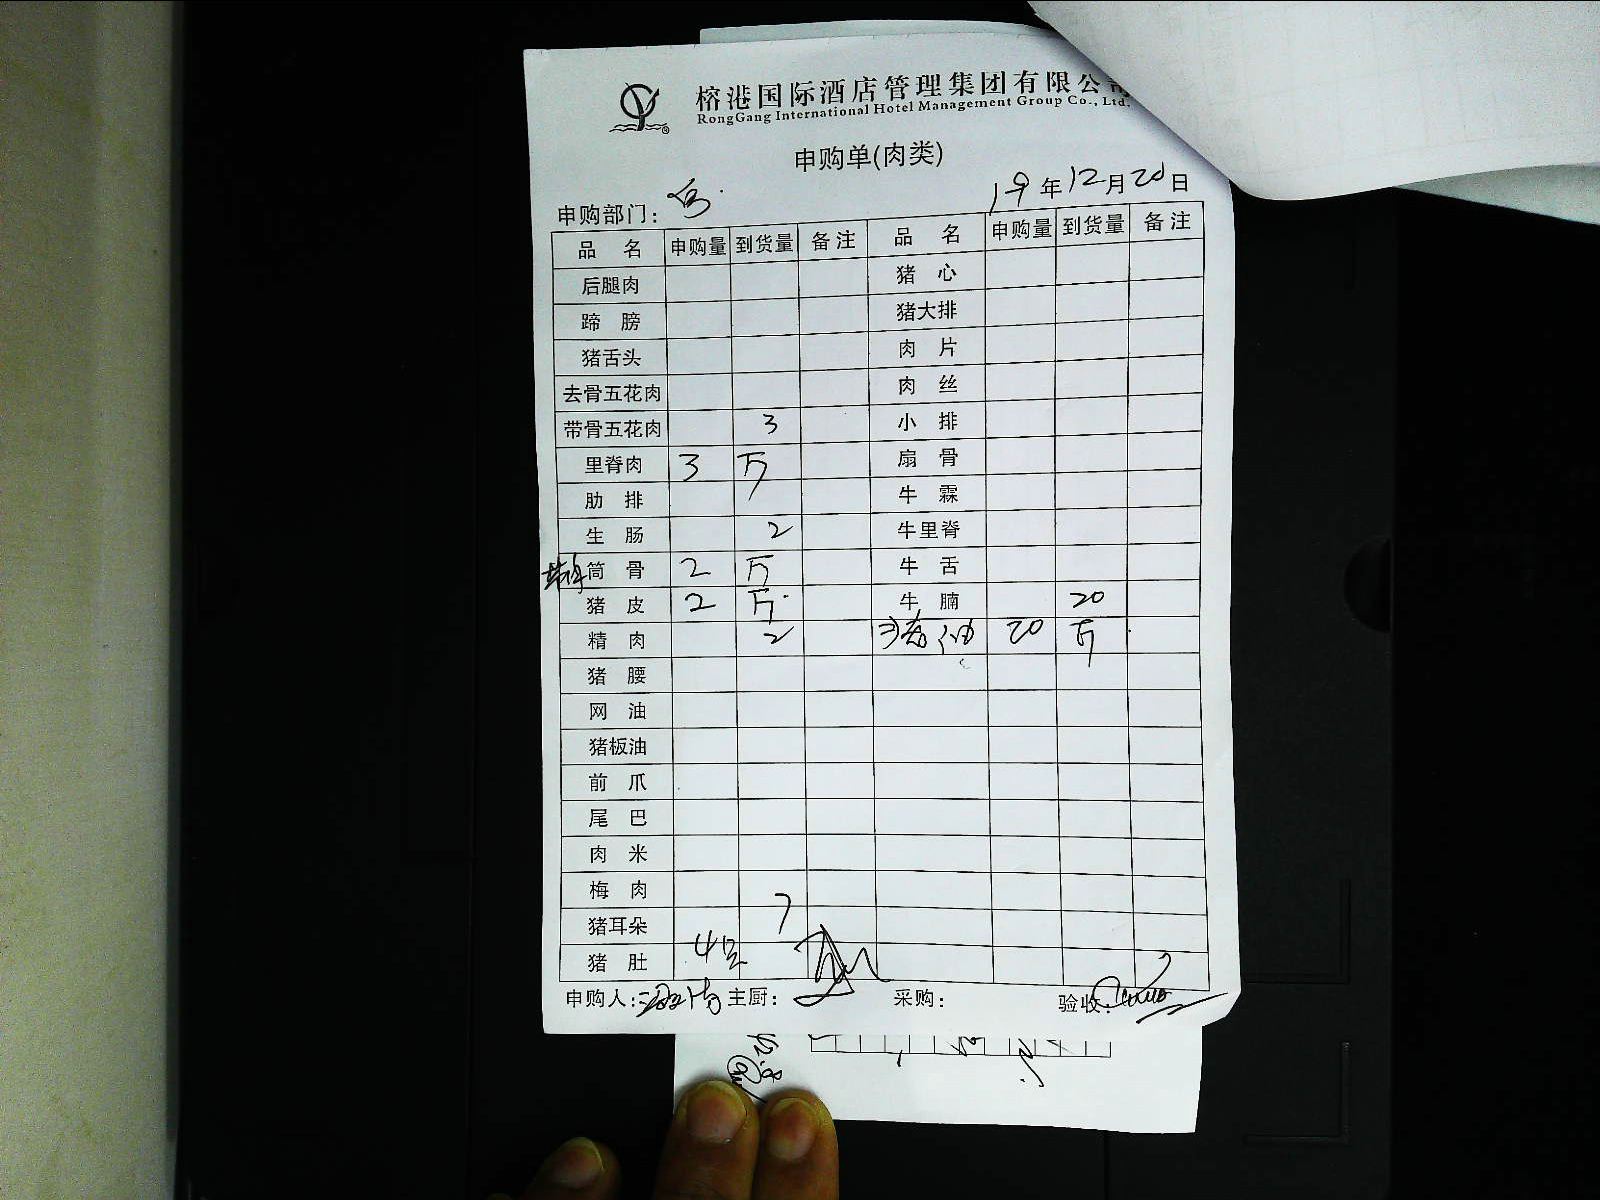 榕港国际酒店管理集团有限公司
RongGang International Hotel Management Group Co., Ltd.
申购单(肉类)
19年12月20日
申购部门：
品 名 申购量 到货量 备注 品 名 申购量 到货量 备注
后腿肉 猪 心
蹄 膀 猪大排
猪舌头 肉 片
去骨五花肉 肉 丝
带骨五花肉 3 小 排
里脊肉 3 斤 扇 骨
肋 排 牛 霖
生 肠 2 牛里脊
筒 骨 2 斤 牛 舌
猪 皮 2 斤 牛 腩 20
精 肉 2 猪油 20 斤
猪 腰
网 油
猪板油
前 爪
尾 巴
肉 米
梅 肉
猪耳朵 7
猪 肚 4
申购人： 主厨： 采购： 验收：